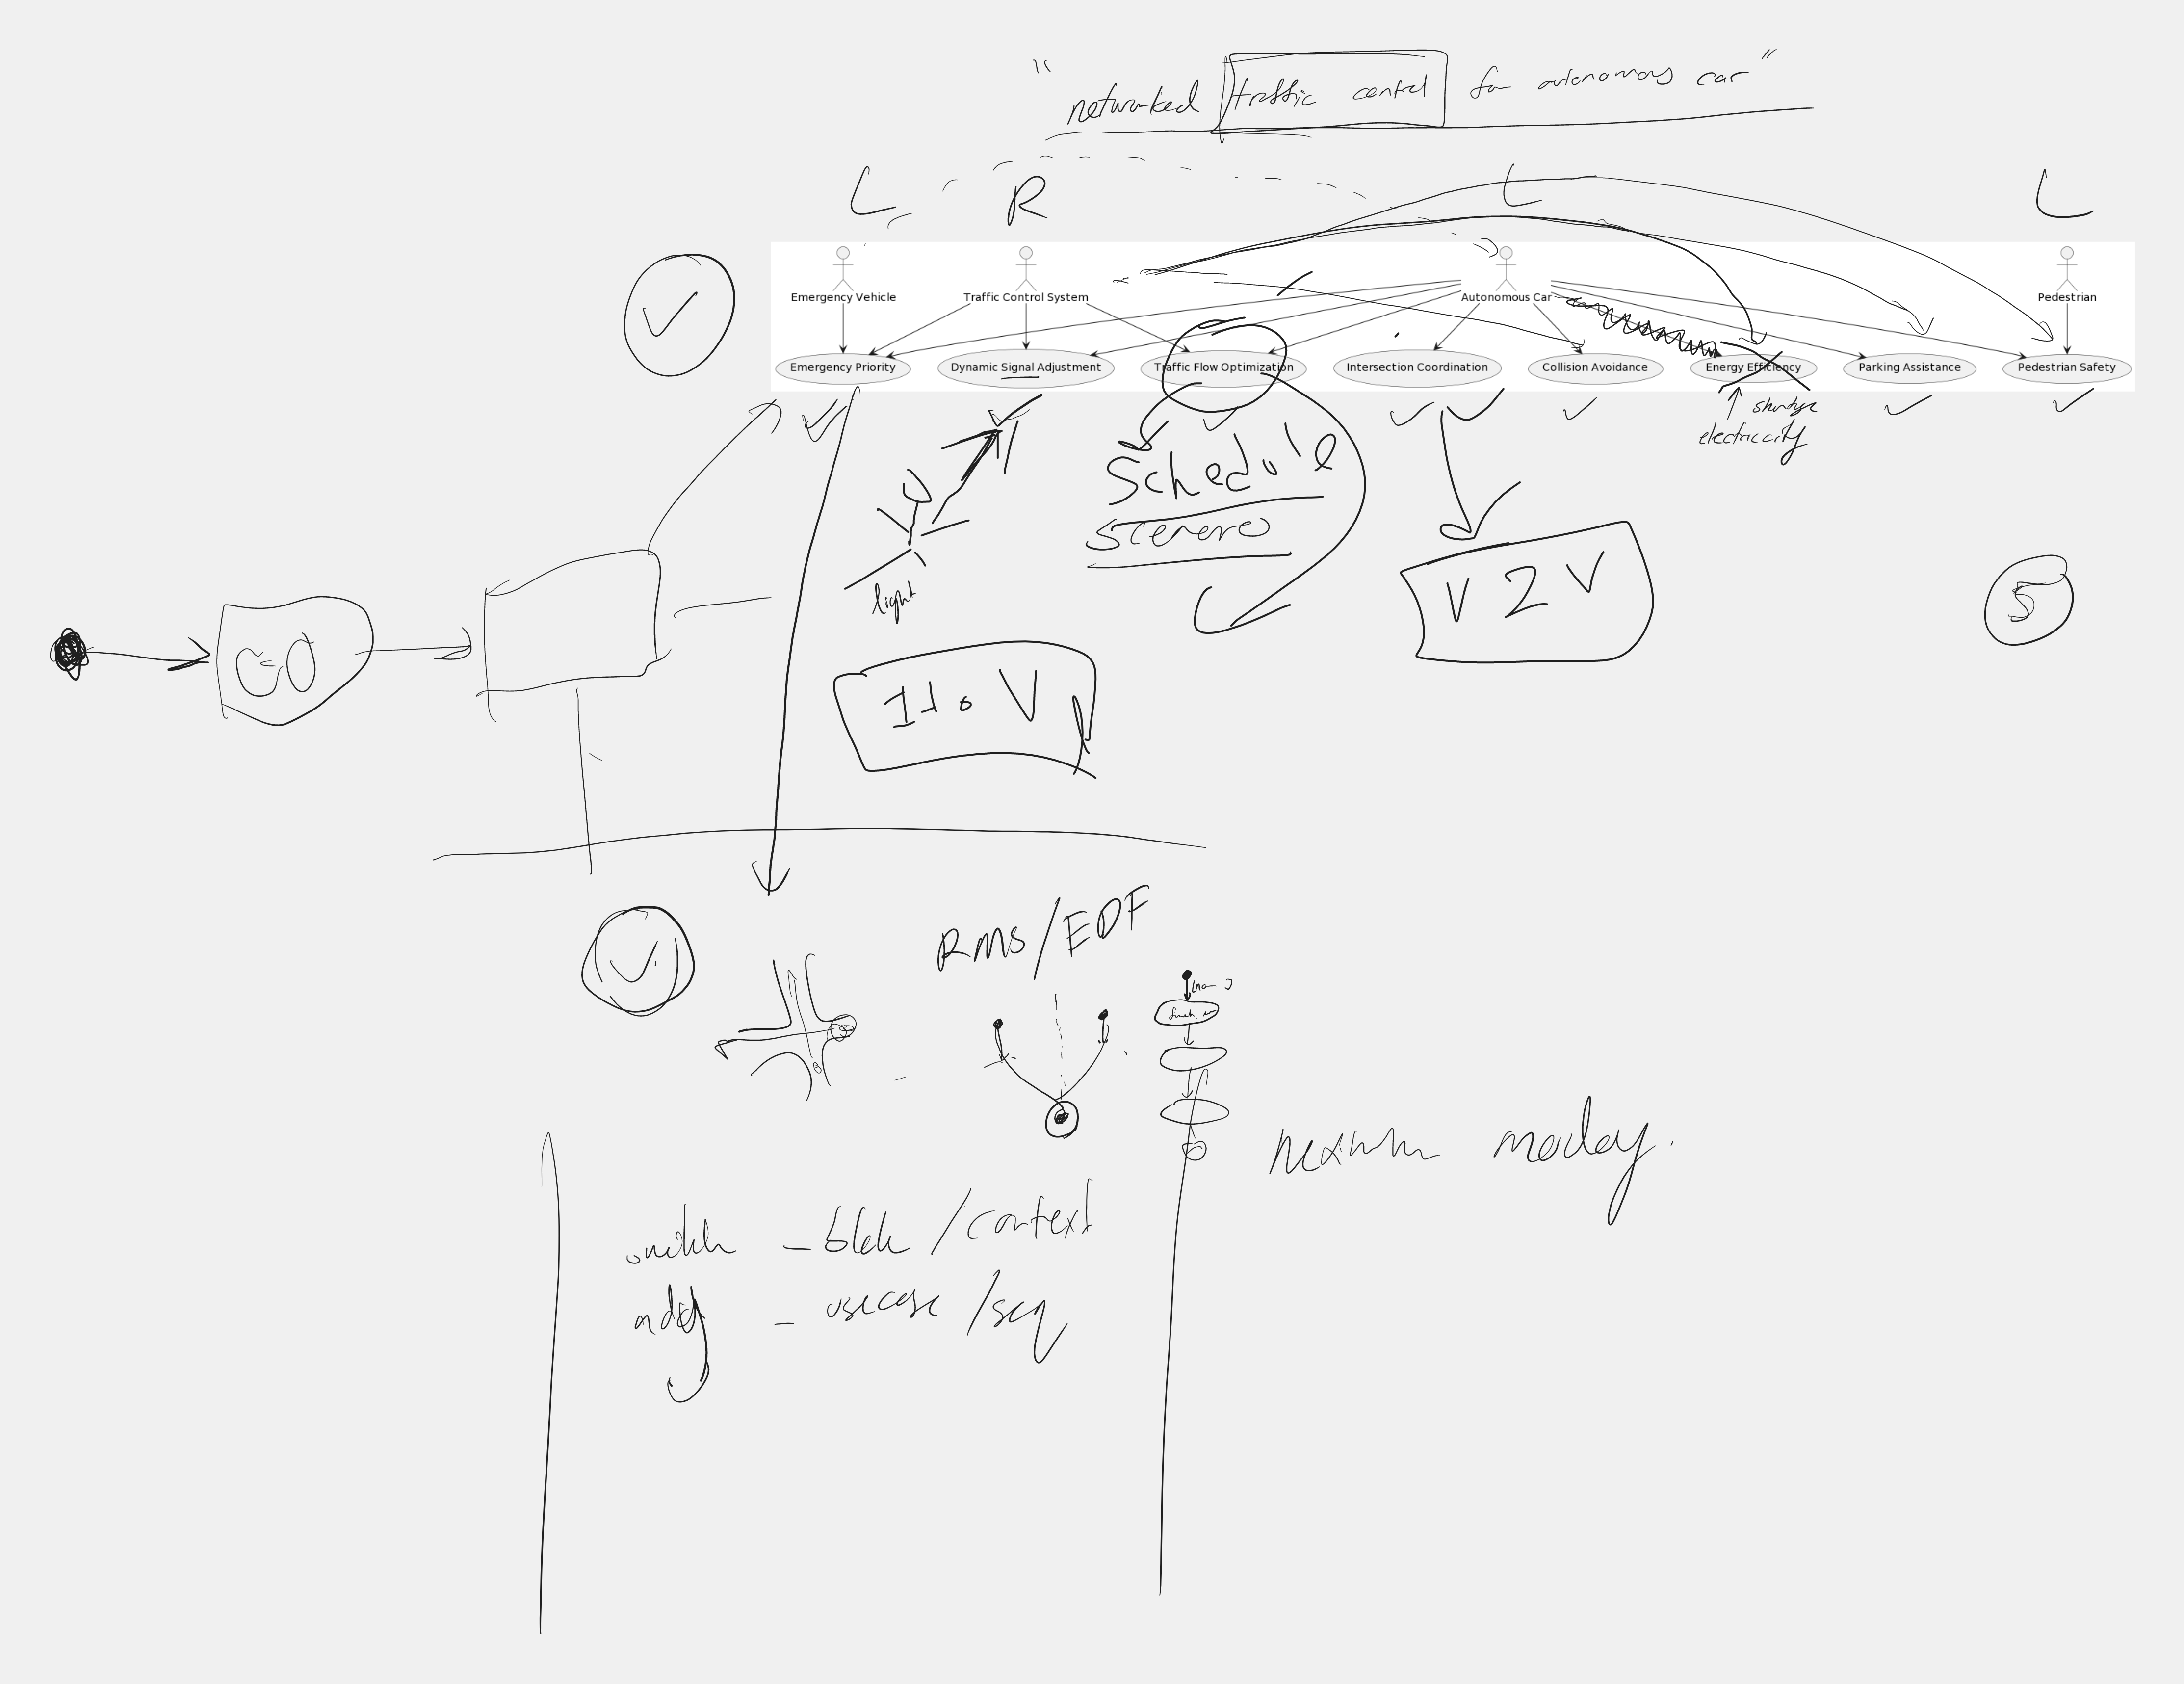 "networked traffic control for autonomous car"
L R L L
Emergency Vehicle Traffic Control System Autonomous Car Pedestrian
Emergency Priority Dynamic Signal Adjustment Traffic Flow Optimization Intersection Coordination Collision Avoidance Energy Efficiency Parking Assistance Pedestrian Safety
electriccity
Schedule
light
V2V
5
RMS/EDF
/context
usecase /seq